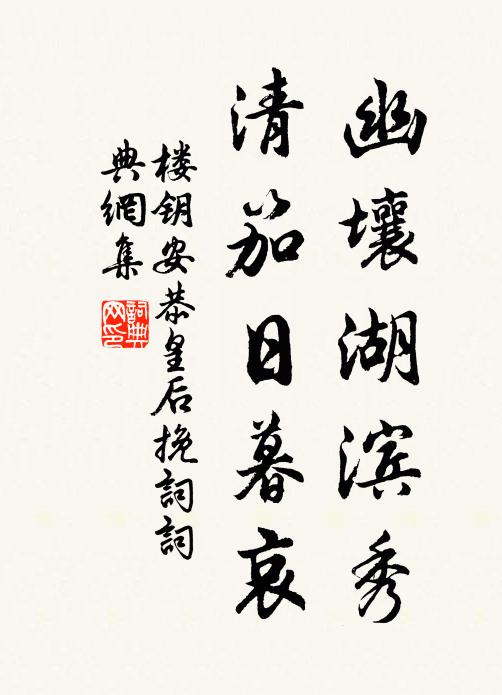 幽壤湖滨秀
清笳日暮哀
楼钥安恭皇后挽詞詞
典網集
詞典网印